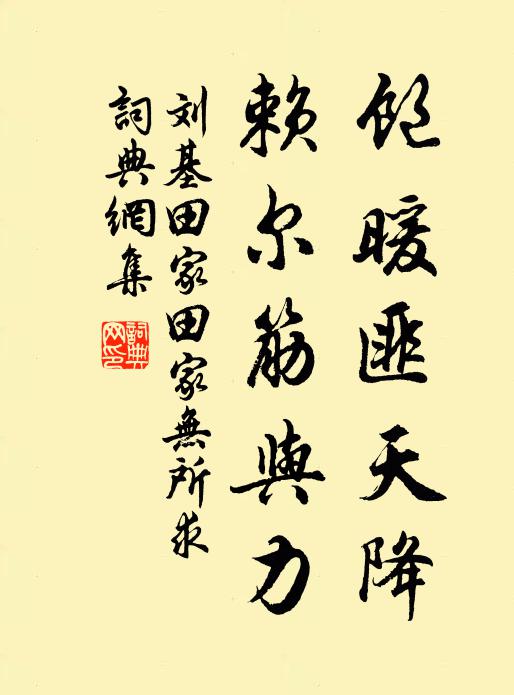 飽暖匪天降
賴尔筋與力
刘基田家田家無所求
詞典網集
詞典网印